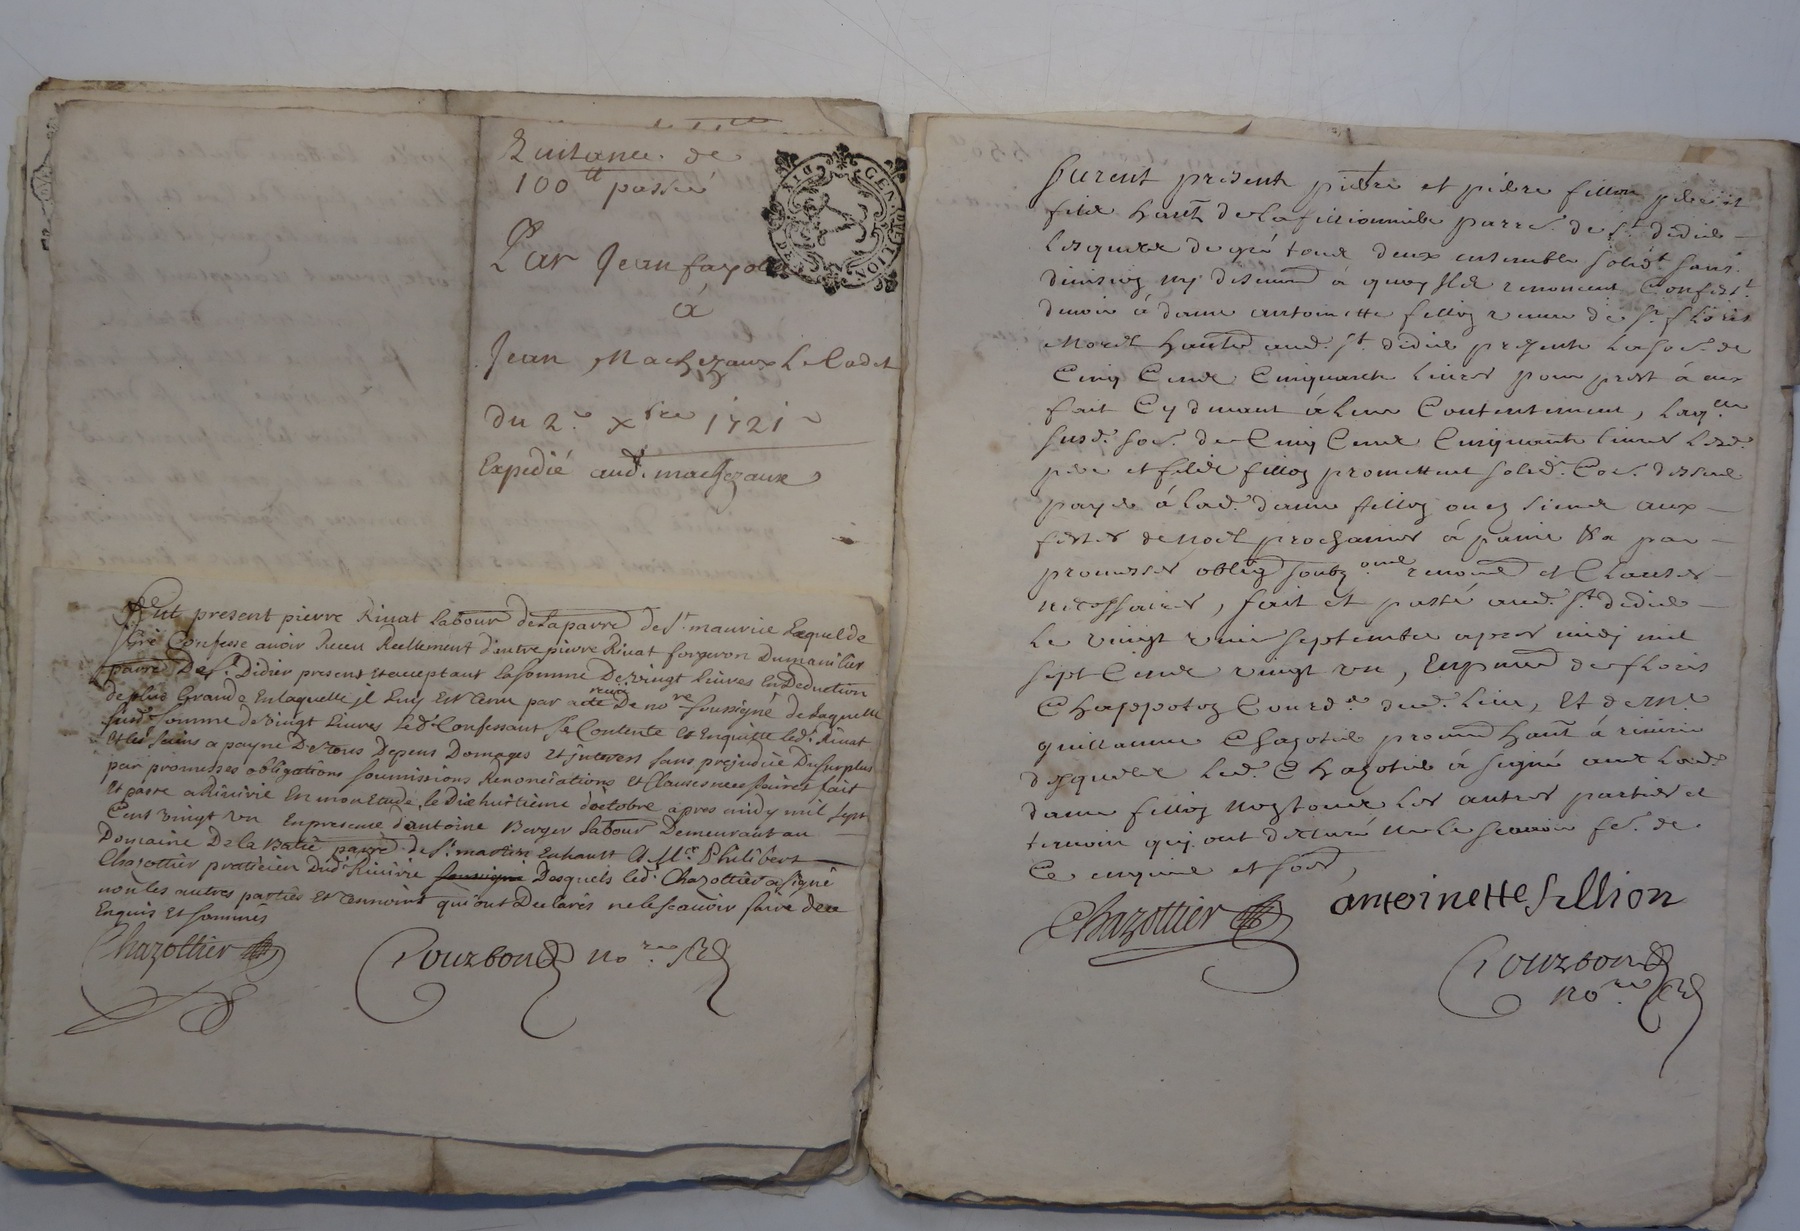 Quitance de
100 ₶ passée
Par Jean fayolle
à
Jean Machezaux Le Cadet
du 2e Xbre 1721
Expedié aud. machezaux
GEN. DE LION
Fut present pierre Rivat Labour de la parre de St. maurice Lequel de
gré Confesse avoir Receu Reellement d'autre pierre Rivat forgeron Du
parre De St. Didier present et acceptant la somme De vingt Livres En Deduction
de plus Grande En laquelle jl Luy Est tenu par acte receu De nore soussigné de laquelle
susd. somme de vingt Livres Led. Confessant Se Contente Et En quitte led. Rivat
Et les siens a payne De tous Depens Domages Et jnterest sans prejudice Du surplus
par promesses obligations soumissions Renonciations Et Clauses necessaires fait
Et passé a Rivirie En mon Etude le Dix huitième d'octobre apres midy mil sept
Cent vingt un En presence d'antoine Berger Labour Demeurant au
Domaine De la Batie parre de St. martin En hault & Mre Philibert
Chazottier praticien Dud. Rivirie soussigné Desquels led. Chazottier a signé
non les autres parties Et temoins qui ont Declarés ne le scavoir faire de ce
Enquis Et sommés
Chazottier
Courbon nore Rl
Furent present pierre et pierre fillion pere et
filz hant. de la fillionniere parre. de St. didier
lesquels de gré tous deux ensemble solidt. sans
division ny discution à quoy Ilz renoncent Confest.
devoir à dame antoinette fillion veuve de Sr. floris
Morel hante. aud. St. didier presente la some. de
Cinq Cens Cinquante livres pour prest à eux
fait Cy devant à leur Contentement, laqlle
susd. some. de Cinq Cens Cinquante livres lesd.
pere et filz fillion promettent solid. Coe. dessus
payer à lad. dame fillion ou ez siens aux
festes de Noel prochaines à paine &a par
promesses oblig. renon. et Clauses
necessaires, fait et passé aud. St. didier
le vingt septembre apres midi mil
sept Cens vingt un, En pnce de floris
Chappoton Courd. dud. lieu, Et de Me.
guillaume Chazotier hant. à rivirie
desquels led. Chazotier à signé avec lad.
dame fillion non tous les autres parties et
temoin qui ont declaré ne le scavoir fe. de
Ce enquis et som.
Chazottier
antoinette fillion
Courbon
nore Rl